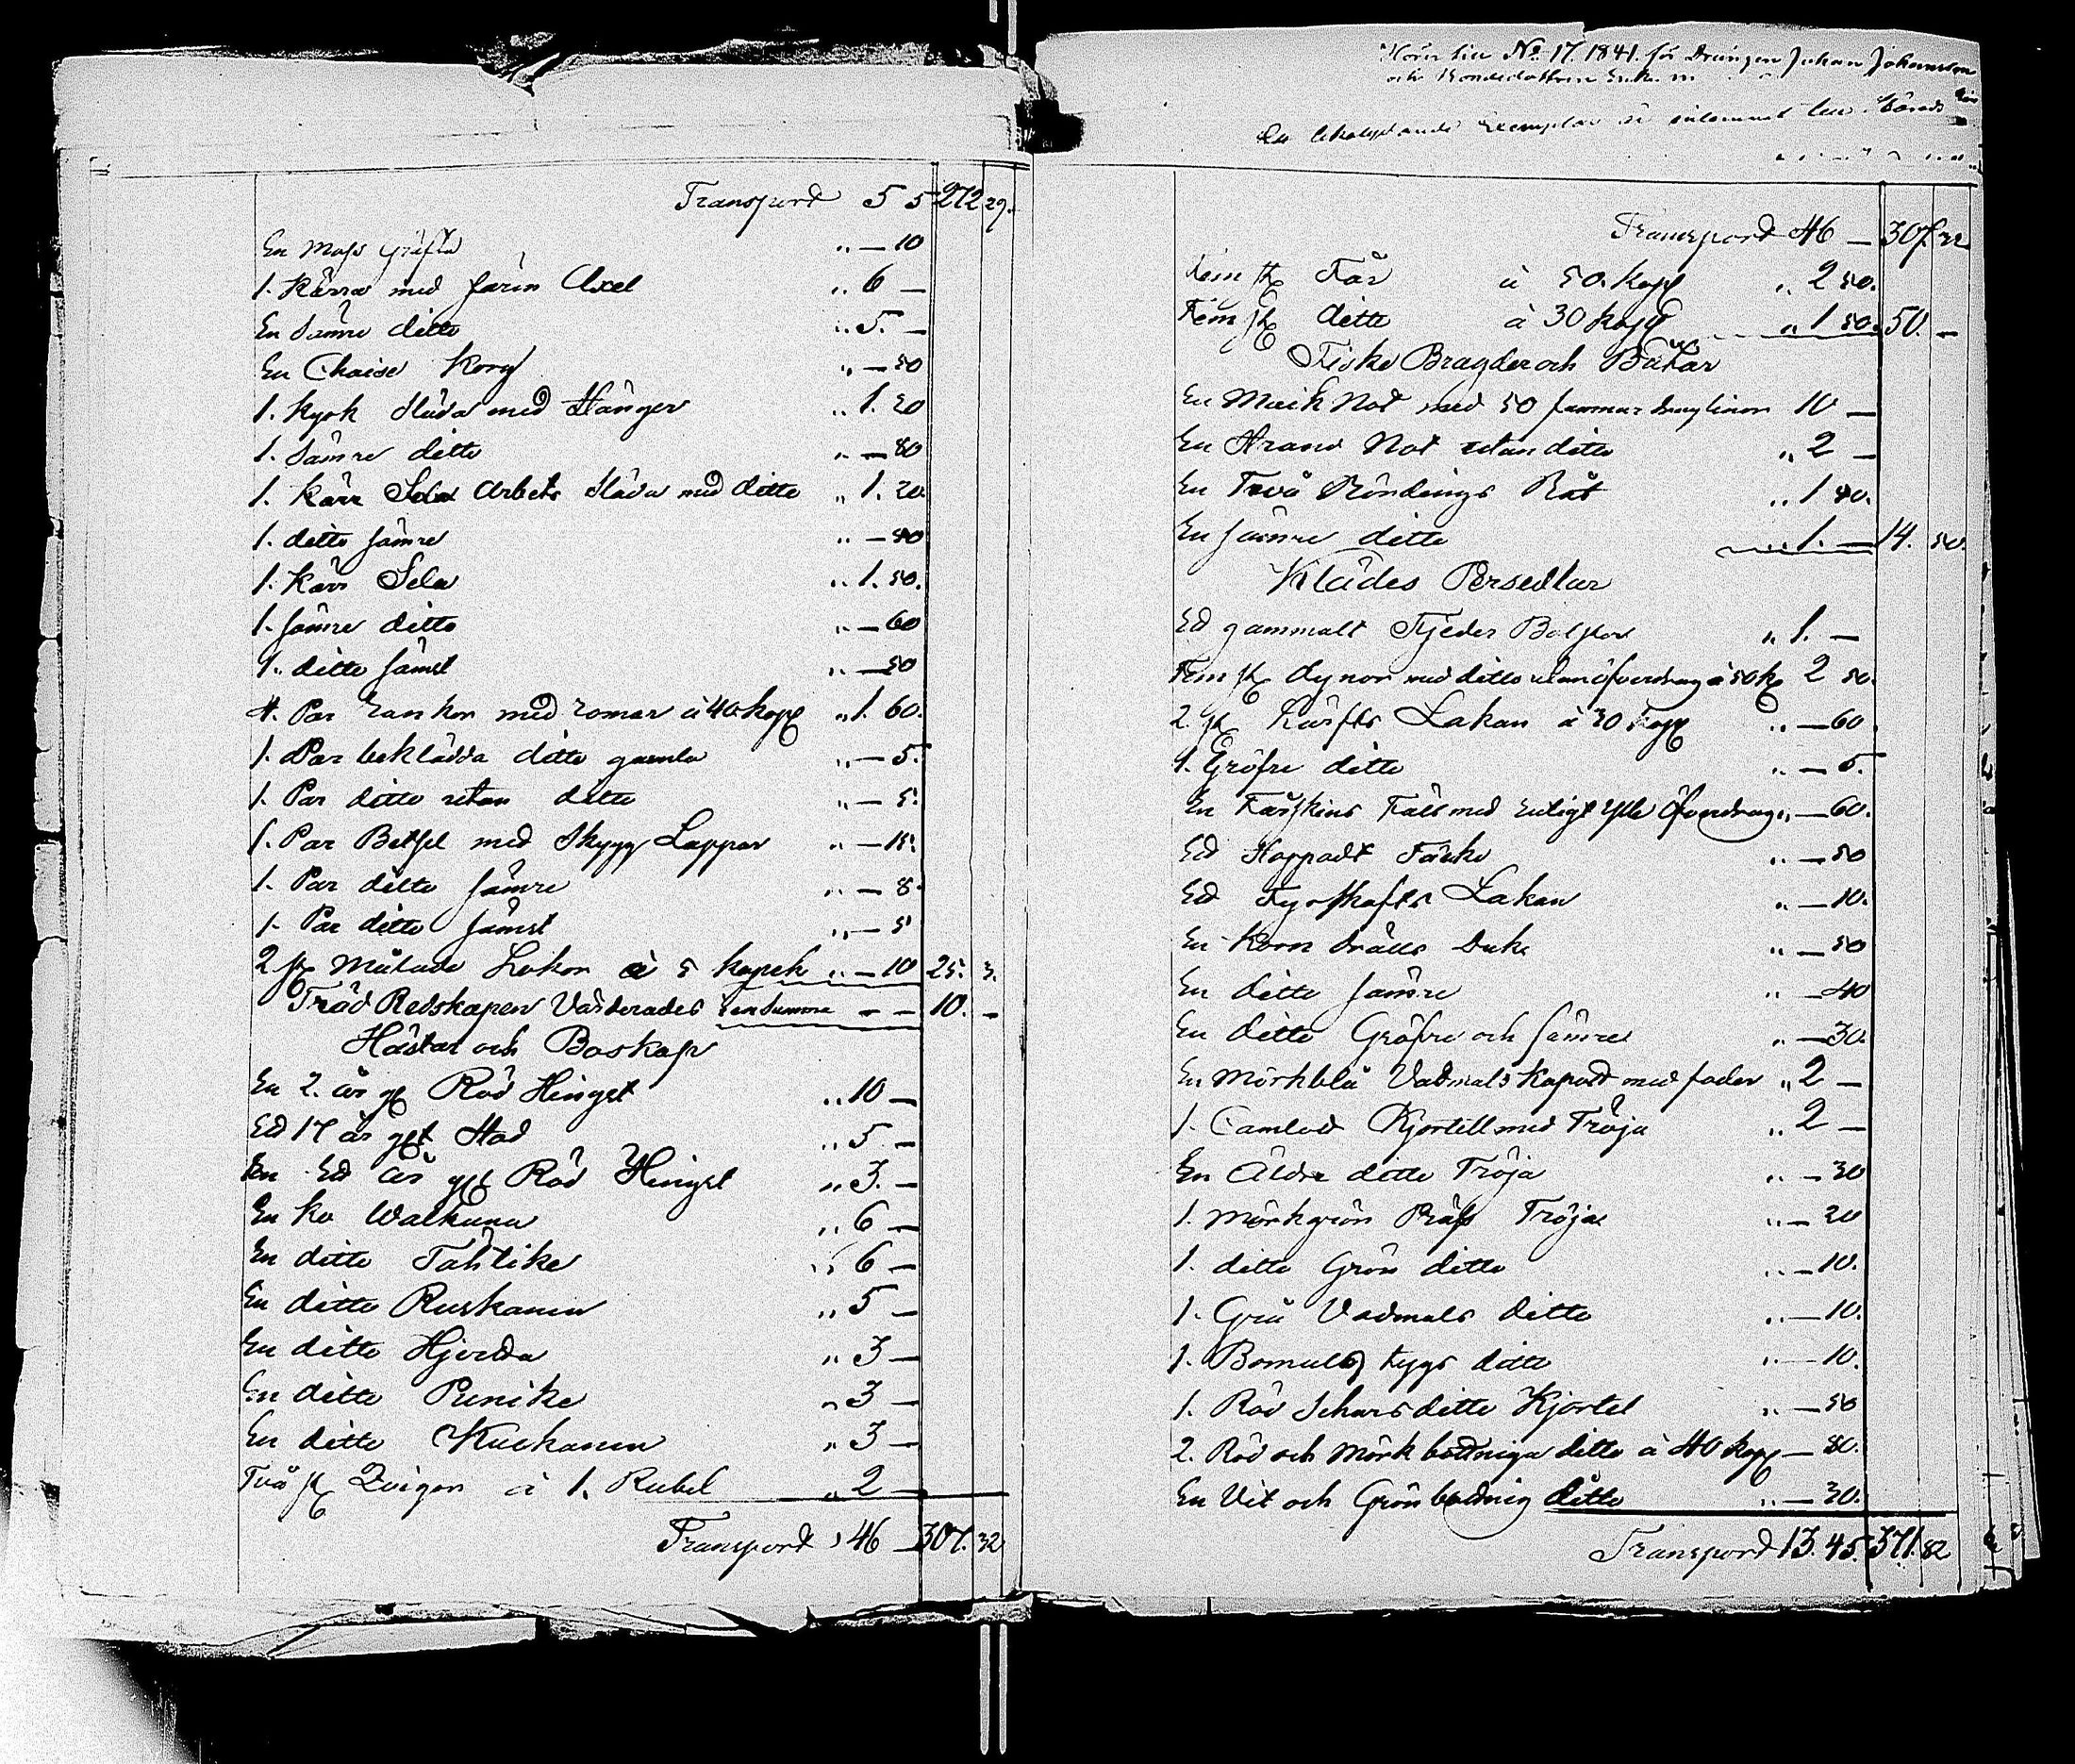 Transpord 5 5 272 29.
En Mass Gräfta „ — 10
1. Kärra med Järn Axel „ 6 —
En Sämre ditto „ 5. —
En Chaise Korg „ — 50
1. Kyrk Släda med Stänger „ 1. 20
1. Sämre ditto „ — 80
1. Kärr Sela Arbets Släda med ditto „ 1. 20.
1. ditto sämre „ — 80
1. Kärr Sela „ 1. 50.
1. sämre ditto „ — 60
1. ditto sämst „ — 50
4. Par Rankor med Romar à 40 kop „ 1. 60.
1. Par beklädda ditto gamla „ — 5.
1. Par ditto utan ditto „ — 5.
1. Par Betsel med Skygg Lappar „ — 15.
1. Par ditto sämre „ — 8.
1. Par ditto sämst „ — 5
2 st Målade Lokor à 5 kopek „ — 10 25. 3.
Träd Redskapen Värderades i en Summa — — 10. —
Hästar och Boskap
En 2. års gl Röd Hingst „ 10 —
Ed 17 års glt Stod „ 5. —
En Ed års glt Röd Hingst „ 3. —
En Ko Walkuna „ 6 —
En ditto Tähtike „ 6 —
En ditto Ruskamn „ 5 —
En ditto Hjerda „ 3 —
En ditto Punike „ 3 —
En ditto Kuckamn „ 3 —
Två st Qvigor à 1. Rubel „ 2 —
Transpord „ 46 — 307. 32
Hörer till No 17. 1841. för Drängen Johan Johansson
och Bondedottren
En likalydande Exemplar är inlemnat till Härads
Transpord 46 — 307. 32
Fem st Får à 50. Kop „ 2 50.
Fem st ditto à 30 kop „ 1 50. 50. —
Fiske Bragder och Båtar
En Muik Not med 50 famnar draglinor 10 —
En Strand Not utan ditto „ 2 —
En Två Röndings Båt „ 1 50.
En sämre ditto „ 1. — 14. 50.
Klädes Persedlar
Ed gammalt Fjeder Bolster „ 1. —
Fem st dynor med ditto utan öfverdrag à 50 k 2 50.
2. st Lärfts Lakan à 30 Kop „ — 60
1. Gröfre ditto „ — 5.
En Fårskins Fäll med Enligt ylle Öfverdrag „ — 60.
Ed Stoppadt Täcke „ — 50
Ed Fyrskafts Lakan „ — 10.
En Korn dralls Duk „ — 50
En ditto sämre „ — 40
En ditto Gröfre och sämre „ — 30.
En Mörkblå Vadmals Kapott med foder „ 2 —
1. Camlott Kjortell med Tröja „ 2 —
En Äldre ditto Tröja „ — 30
1. Mörkgrön Räfs Tröja „ — 20
1. ditto Grön ditto „ — 10.
1. Grå Vadmals ditto „ — 10.
1. Bomulls tygs ditto „ — 10.
1. Röd Schars ditto Kjortel „ — 50
2. Röd och Mörk bottniga ditto à 40 kop — 80.
En Vit och Grön bottnig ditto „ — 30.
Transpord 13. 45. 371. 82